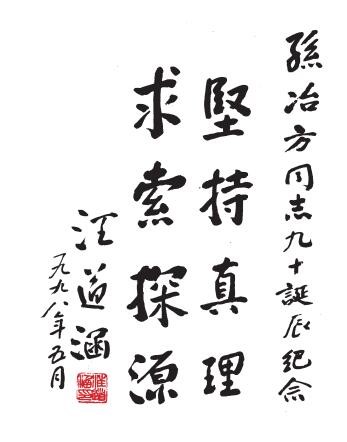 孫冶方同志九十誕辰纪念
堅持真理
求索探源
汪道涵
一九九八年五月